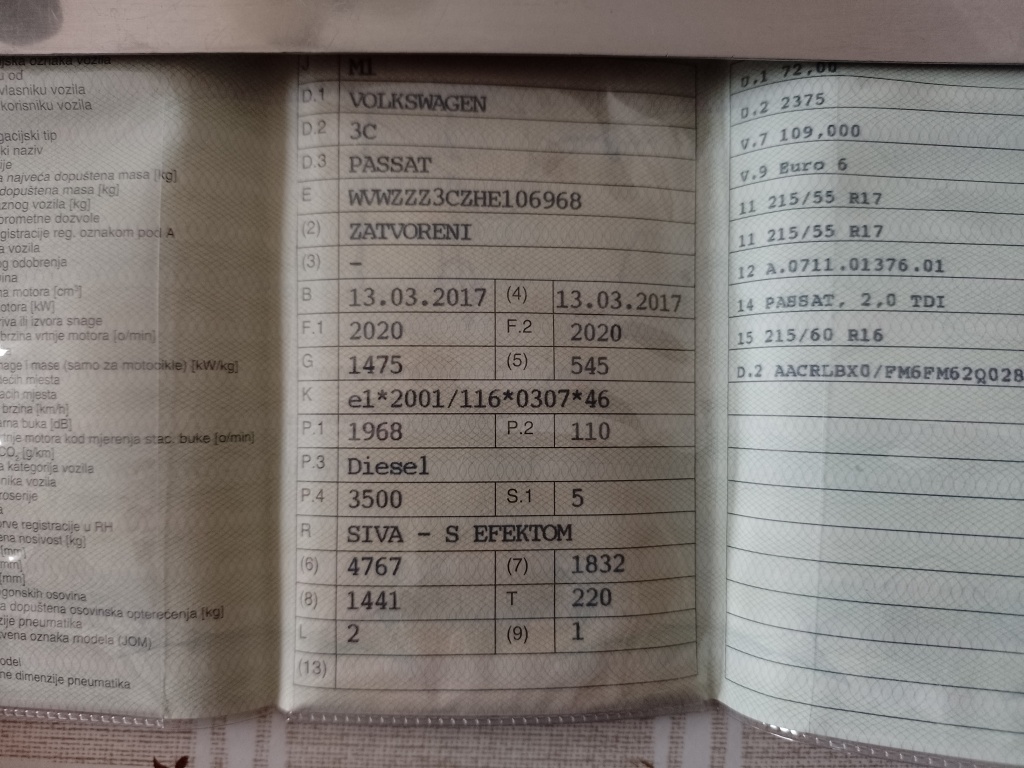 jska oznaka vozila
u od
vlasniku vozila
korisniku vozila
gacijski tip
ki naziv
ije
a najveća dopuštena masa [kg]
dopuštena masa [kg]
znog vozila [kg]
prometne dozvole
gistracije reg. oznakom pod A
a vozila
og odobrenja
vina
na motora [cm³]
otora [kW]
riva ili izvora snage
brzina vrtnje motora [o/min]
nage i mase (samo za motocikle) [kW/kg]
dećih mjesta
aćih mjesta
brzina [km/h]
ama buka [dB]
rtnje motora kod mjerenja stac. buke [o/min]
CO₂ [g/km]
a kategorija vozila
nika vozila
rosenije
a
prve registracije u RH
ena nosivost [kg]
[mm]
mm]
[mm]
gonskih osovina
a dopuštena osovinska opterećenja [kg]
zije pneumatika
tvena oznaka modela (JOM)
odel
ne dimenzije pneumatika
J M1
D.1 VOLKSWAGEN
D.2 3C
D.3 PASSAT
E WVWZZZ3CZHE106968
(2) ZATVORENI
(3) –
B 13.03.2017 (4) 13.03.2017
F.1 2020 F.2 2020
G 1475 (5) 545
K e1*2001/116*0307*46
P.1 1968 P.2 110
P.3 Diesel
P.4 3500 S.1 5
R SIVA - S EFEKTOM
(6) 4767 (7) 1832
(8) 1441 T 220
L 2 (9) 1
(13)
U.1 72,00
U.2 2375
V.7 109,000
V.9 Euro 6
11 215/55 R17
11 215/55 R17
12 A.0711.01376.01
14 PASSAT, 2,0 TDI
15 215/60 R16
D.2 AACRLBX0/FM6FM62Q028